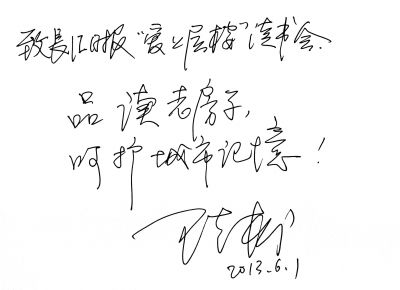 致長江日报“爱上层楼”读书会.
品读老房子,
呵护城市记憶！
2013.6.1